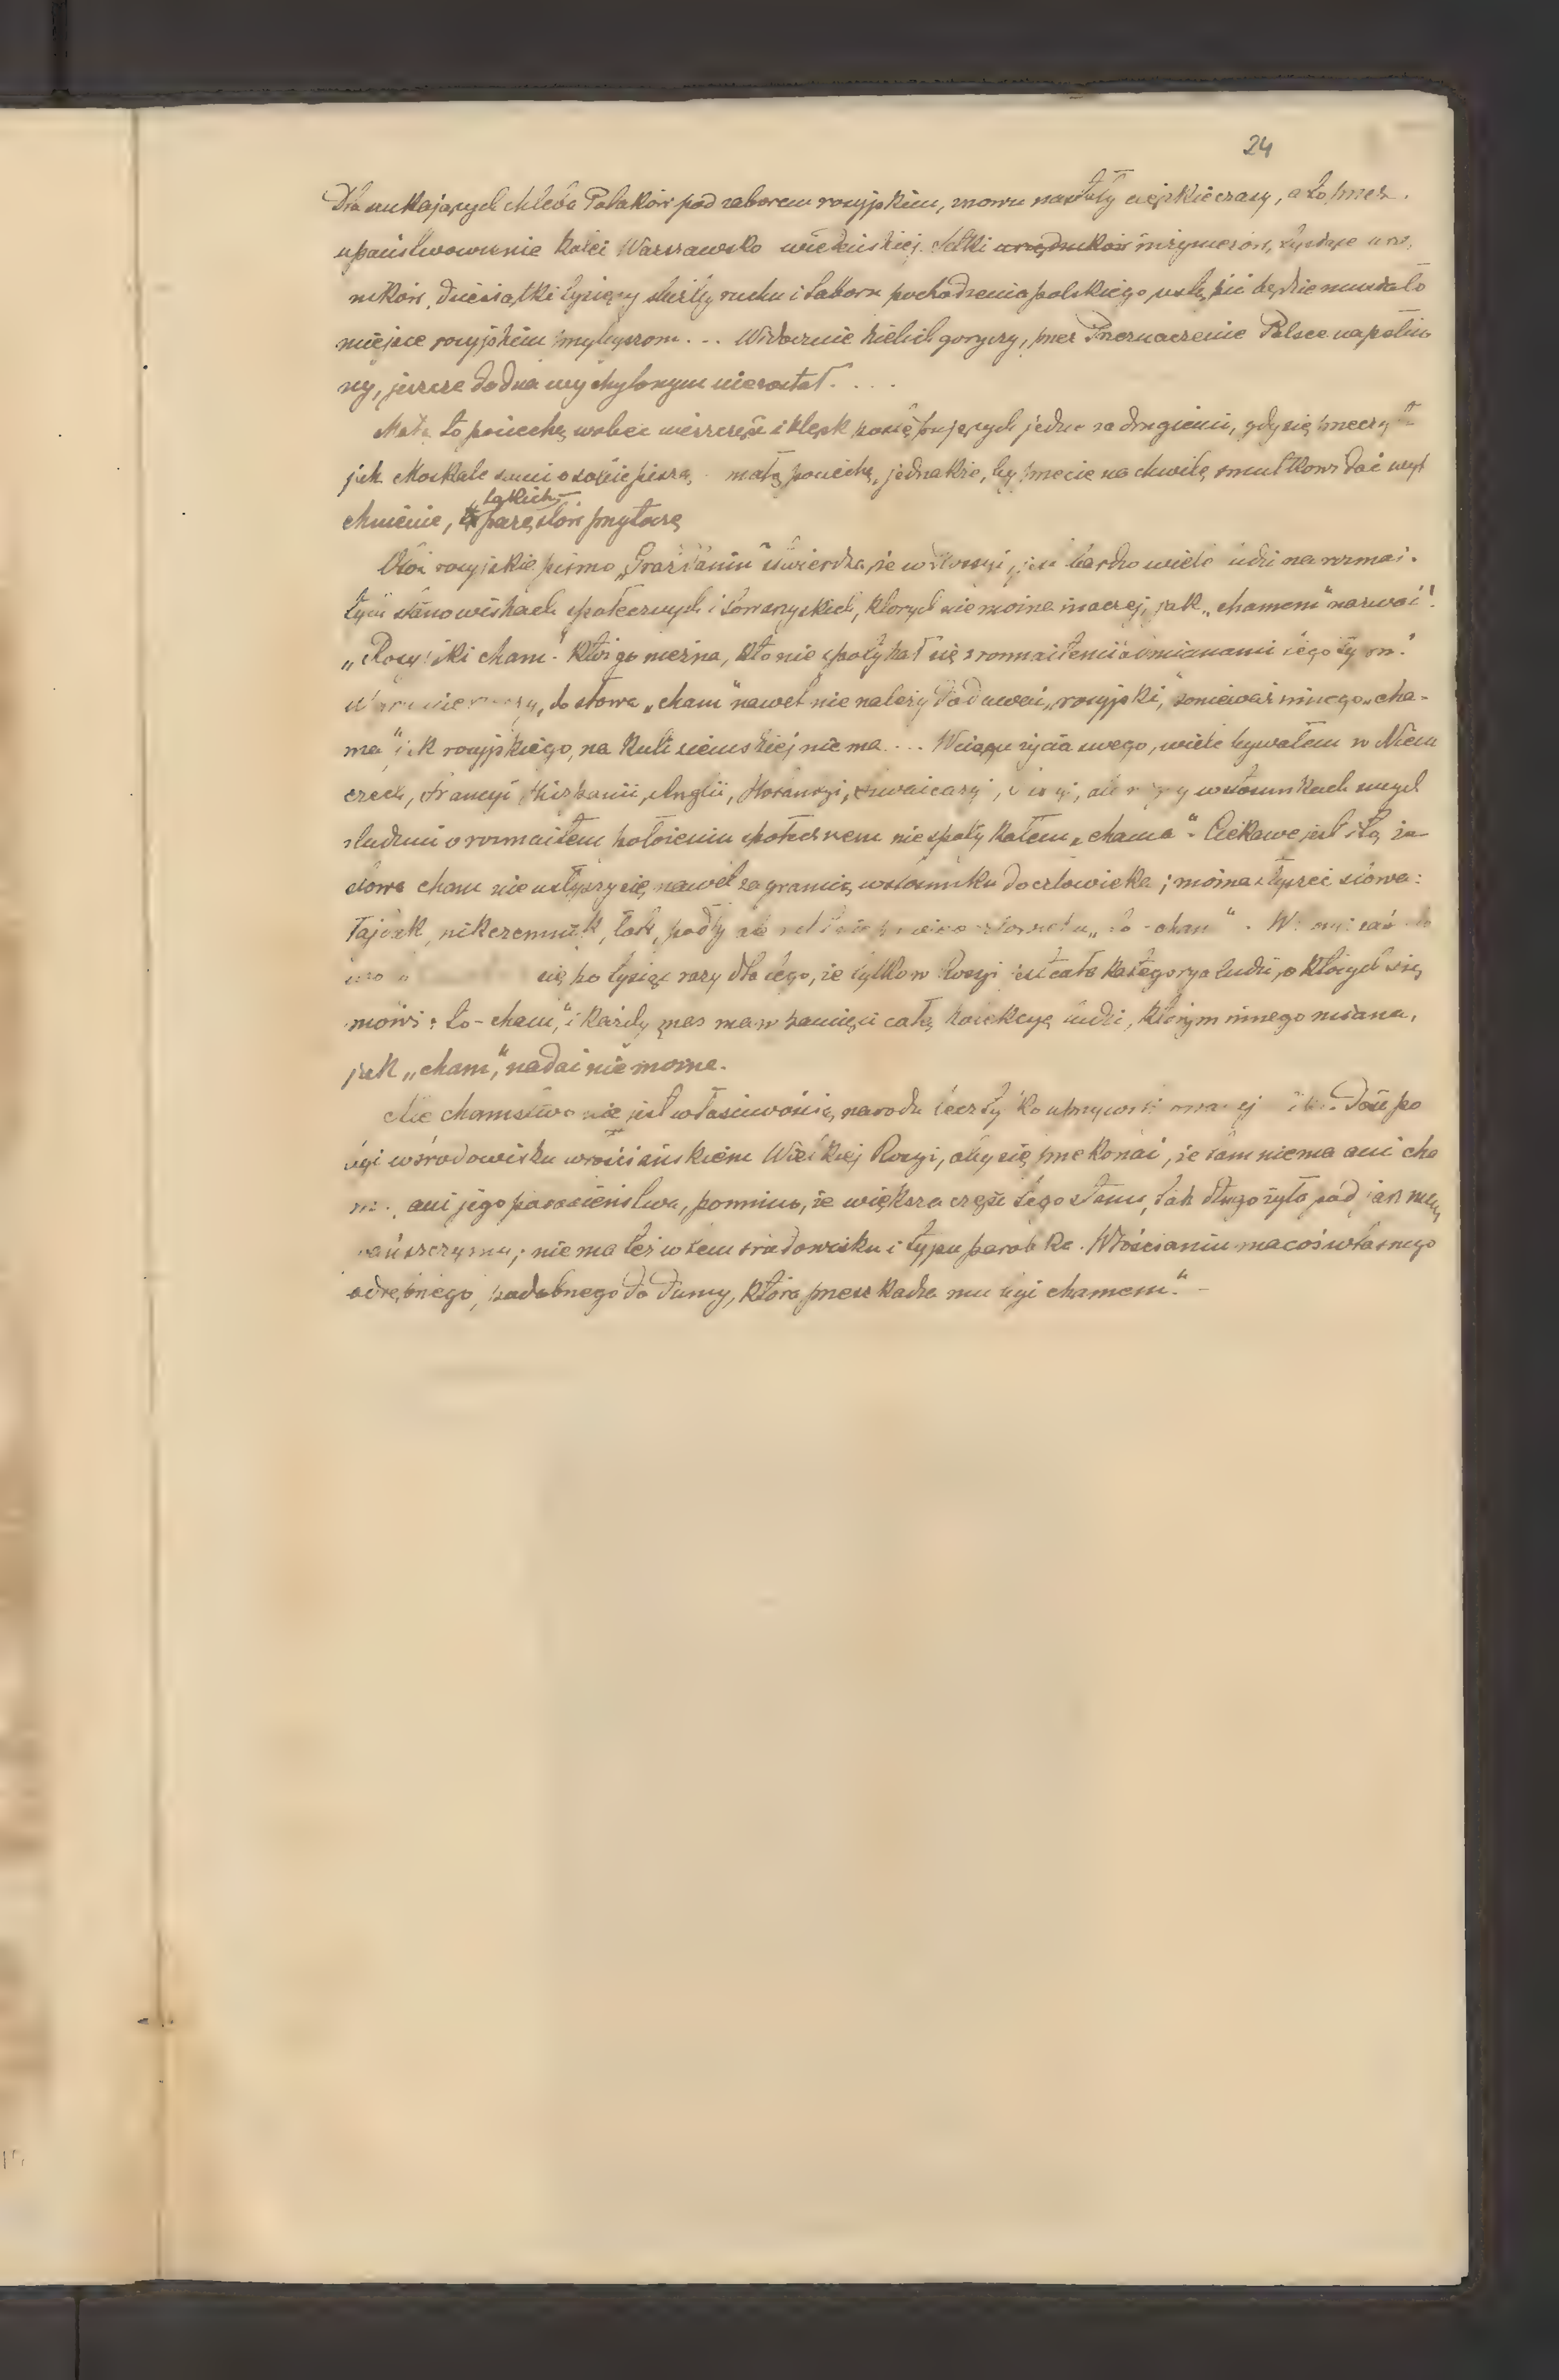 24
Dla szukających chleba Polaków pod zaborem rosyjskim, znowu nastały ciężkie czasy, a to przez
upaństwowienie kolei Warszawsko wiedeńskiej. Setki urzędników inżynierów, tysiące urzę-
ników, dziesiątki tysięcy służby ruchu i taboru pochodzenia polskiego ustąpić będzie musiało
miejsce rosyjskim przybyszom... Widocznie kielich goryczy, przez Przeznaczenie Polsce napełnio
ny, jeszcze do dna wychylonym nie został....
Mała to pociecha, wobec nieszczęść i klęsk następujących jedne za drugiemi, gdy się przeczyta
jak Moskale sami o sobie piszą, małą pociechę, jednakże, by przecie na chwilę smutkowi dać wyt
chnienie, takich parę słów przytoczę
Otóż rosyjskie pismo „Grażdanin" twierdza, że w Rossyi, jest bardzo wiele ludzi na rozmai-
tych stanowiskach społecznych i towarzyskich, których nie można inaczej, jak „chamem" nazwać!
„Rosyjski cham." Któż go nie zna, kto nie spotykał się z rozmaitemi odmianami tego typu."
do słowa „cham" nawet nie należy dodawać „rosyjski," ponieważ innego „cha-
ma" jak rosyjskiego, na kuli ziemskiej nie ma... W ciągu życia swego, wiele bywałem w Niem
czech, Francyi, Hiszpanii, Anglii, Holandyi, Szwaicaryi, ale nigdy w stosunkach swych
z ludźmi o rozmaitem położeniu społecznem nie spotykałem „chama". Ciekawe jest i to, że
słowa cham nie usłyszy się nawet za granicą w stosunku do człowieka; można słyszeć słowa:
łajdak, nikczemnik, łotr, podły ale „to-cham".
się po tysiąc razy dla tego, że tylko w Rosyi jest cała kategorya ludzi, o których się
mówi: to-cham," i każdy z nas ma w pamięci całą kolekcyę ludzi, którym innego miana,
jak „cham," nadać nie można.
Ale chamstwo nie jest właściwością narodu lecz tylko Dość po
być w środowisku włościańskiem Wielkiej Rosyi, aby się przekonać, że tam niema ani cha
ma, ani jego pokrewieństwa, pomimo, że większa część tego stanu, tak długo żyła pod jarzmem
pańszczyzny; nie ma też w tem środowisku i typu parobka. Włościanin ma coś własnego
odrębnego, podobnego do dumy, która przeszkadza mu być chamem."-